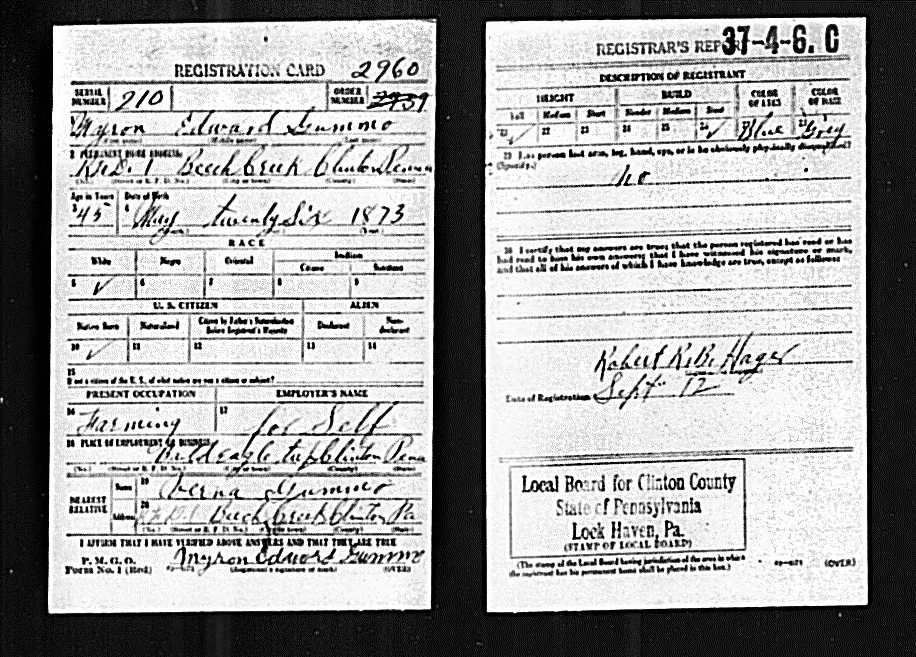 REGISTRATION CARD 2960
SERIAL NUMBER 210 ORDER NUMBER 2939
Myron Edward Gummo
(First name) (Middle name) (Last name)
2 PERMANENT HOME ADDRESS:
R.F.D. 1 Beech Creek Clinton Penna
(No.) (Street or R. F. D. No.) (City or town) (County) (State)
Age in Years Date of Birth
3 45 4 May twenty six 1873
(Month.) (Day.) (Year.)
RACE
White Negro Oriental Indian
Citizen Noncitizen
5 ✓ 6 7 8 9
U. S. CITIZEN ALIEN
Native Born Naturalized Citizen by Father's Naturalization Before Registrant's Majority Declarant Non-declarant
10 ✓ 11 12 13 14
15
If not a citizen of the U. S., of what nation are you a citizen or subject?
PRESENT OCCUPATION EMPLOYER'S NAME
16 Farming 17 for Self
18 PLACE OF EMPLOYMENT OR BUSINESS:
Bald eagle twp Clinton Pena
(No.) (Street or R. F. D. No.) (City or town) (County) (State)
NEAREST RELATIVE Name 19 Verna Gummo
Address 20 R.F.D. 1 Beech Creek Clinton Pa
(No.) (Street or R. F. D. No.) (City or town) (County) (State)
I AFFIRM THAT I HAVE VERIFIED ABOVE ANSWERS AND THAT THEY ARE TRUE
P. M. G. O.
Form No. 1 (Red) Myron Edward Gummo
(Registrant's signature or mark) (OVER)
REGISTRAR'S REPORT 37-4-6. C
DESCRIPTION OF REGISTRANT
HEIGHT BUILD COLOR OF EYES COLOR OF HAIR
Tall Medium Short Slender Medium Stout
21 ✓ 22 23 24 25 26 ✓ Blue Grey
29 Has person lost arm, leg, hand, eye, or is he obviously physically disqualified?
(Specify.)
no
30 I certify that my answers are true; that the person registered has read or has
had read to him his own answers; that I have witnessed his signature or mark,
and that all of his answers of which I have knowledge are true, except as follows:
Robert K.B. Hager
Date of Registration Sept 12
Local Board for Clinton County
State of Pennsylvania
Lock Haven, Pa.
(STAMP OF LOCAL BOARD)
(The stamp of the Local Board having jurisdiction of the area in which
the registrant has his permanent home shall be placed in this box.)
(OVER)